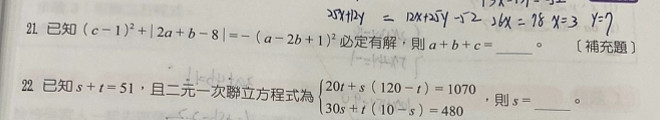 25x+12y = 12x+25y-52 26x = 78 x=3 y=7
21. 已知(c-1)²+|2a+b-8|=-(a-2b+1)²必定有解，則a+b+c=____。 〔補充題〕
22. 已知s+t=51，且二元一次聯立方程式為{20t+s(120-t)=1070
30s+t(10-s)=480，則s=____。